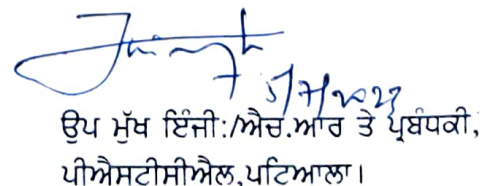 5/7/2023
ਉਪ ਮੁੱਖ ਇੰਜੀ:/ਐਚ.ਆਰ ਤੇ ਪ੍ਰਬੰਧਕੀ,
ਪੀਐਸਟੀਸੀਐਲ,ਪਟਿਆਲਾ।